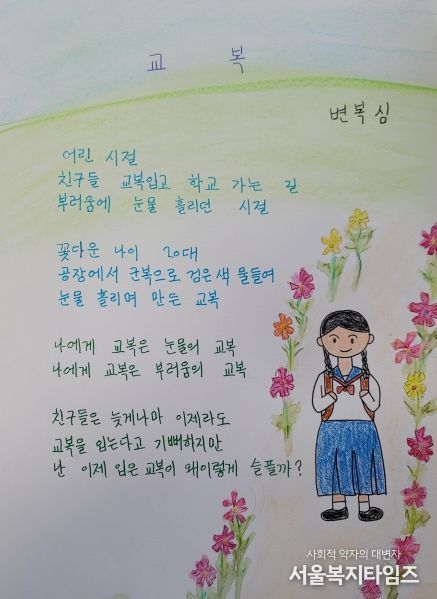 교 복
변복심
어린 시절
친구들 교복입고 학교 가는 길
부러움에 눈물 흘리던 시절
꽃다운 나이 20대
공장에서 군복으로 검은색 물들여
눈물 흘리며 만든 교복
나에게 교복은 눈물의 교복
나에게 교복은 부러움의 교복
친구들은 늦게나마 이제라도
교복을 입는다고 기뻐하지만
난 이제 입은 교복이 왜이렇게 슬플까?
사회적 약자의 대변자
서울복지타임즈